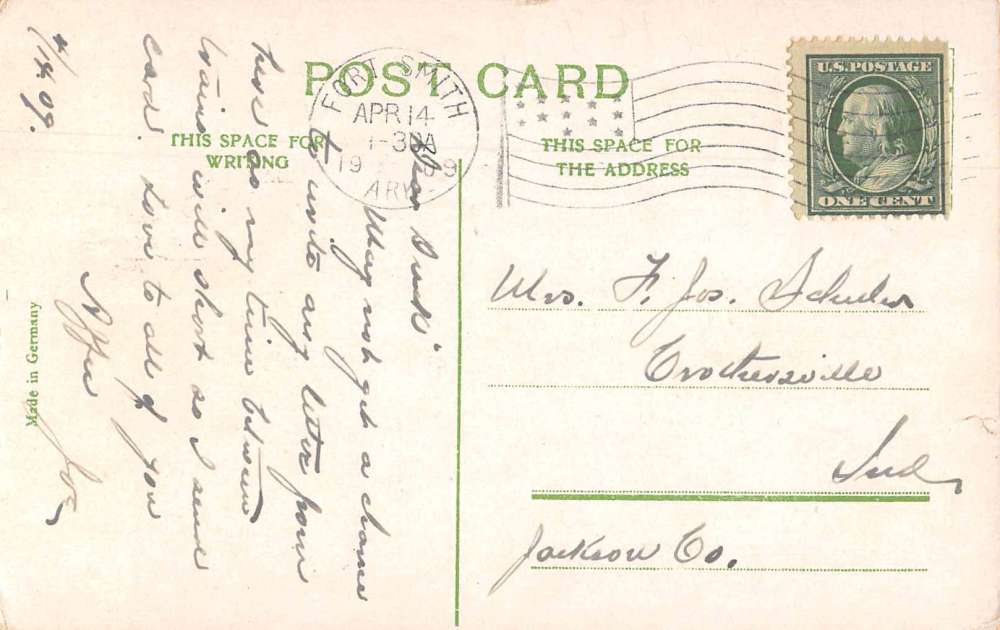 POST CARD
THIS SPACE FOR
WRITING
THIS SPACE FOR
THE ADDRESS
FORT SMITH
APR 14
1-30A
19 09
ARK
U.S. POSTAGE
ONE CENT
4/14.09.
May not get a chance
to write any letter from
here as my time between
trains will short so I send
Card. Love to all of you
Joe
Mrs. F. Jos.
Crothersville
Ind
Jackson Co.
Made in Germany